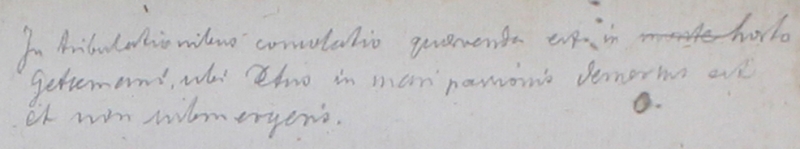 In tribulationibus consolatio quaerenda est: in monte horto
Getsemani, ubi Xtus in mari passionis demersus est
et non submergeris.